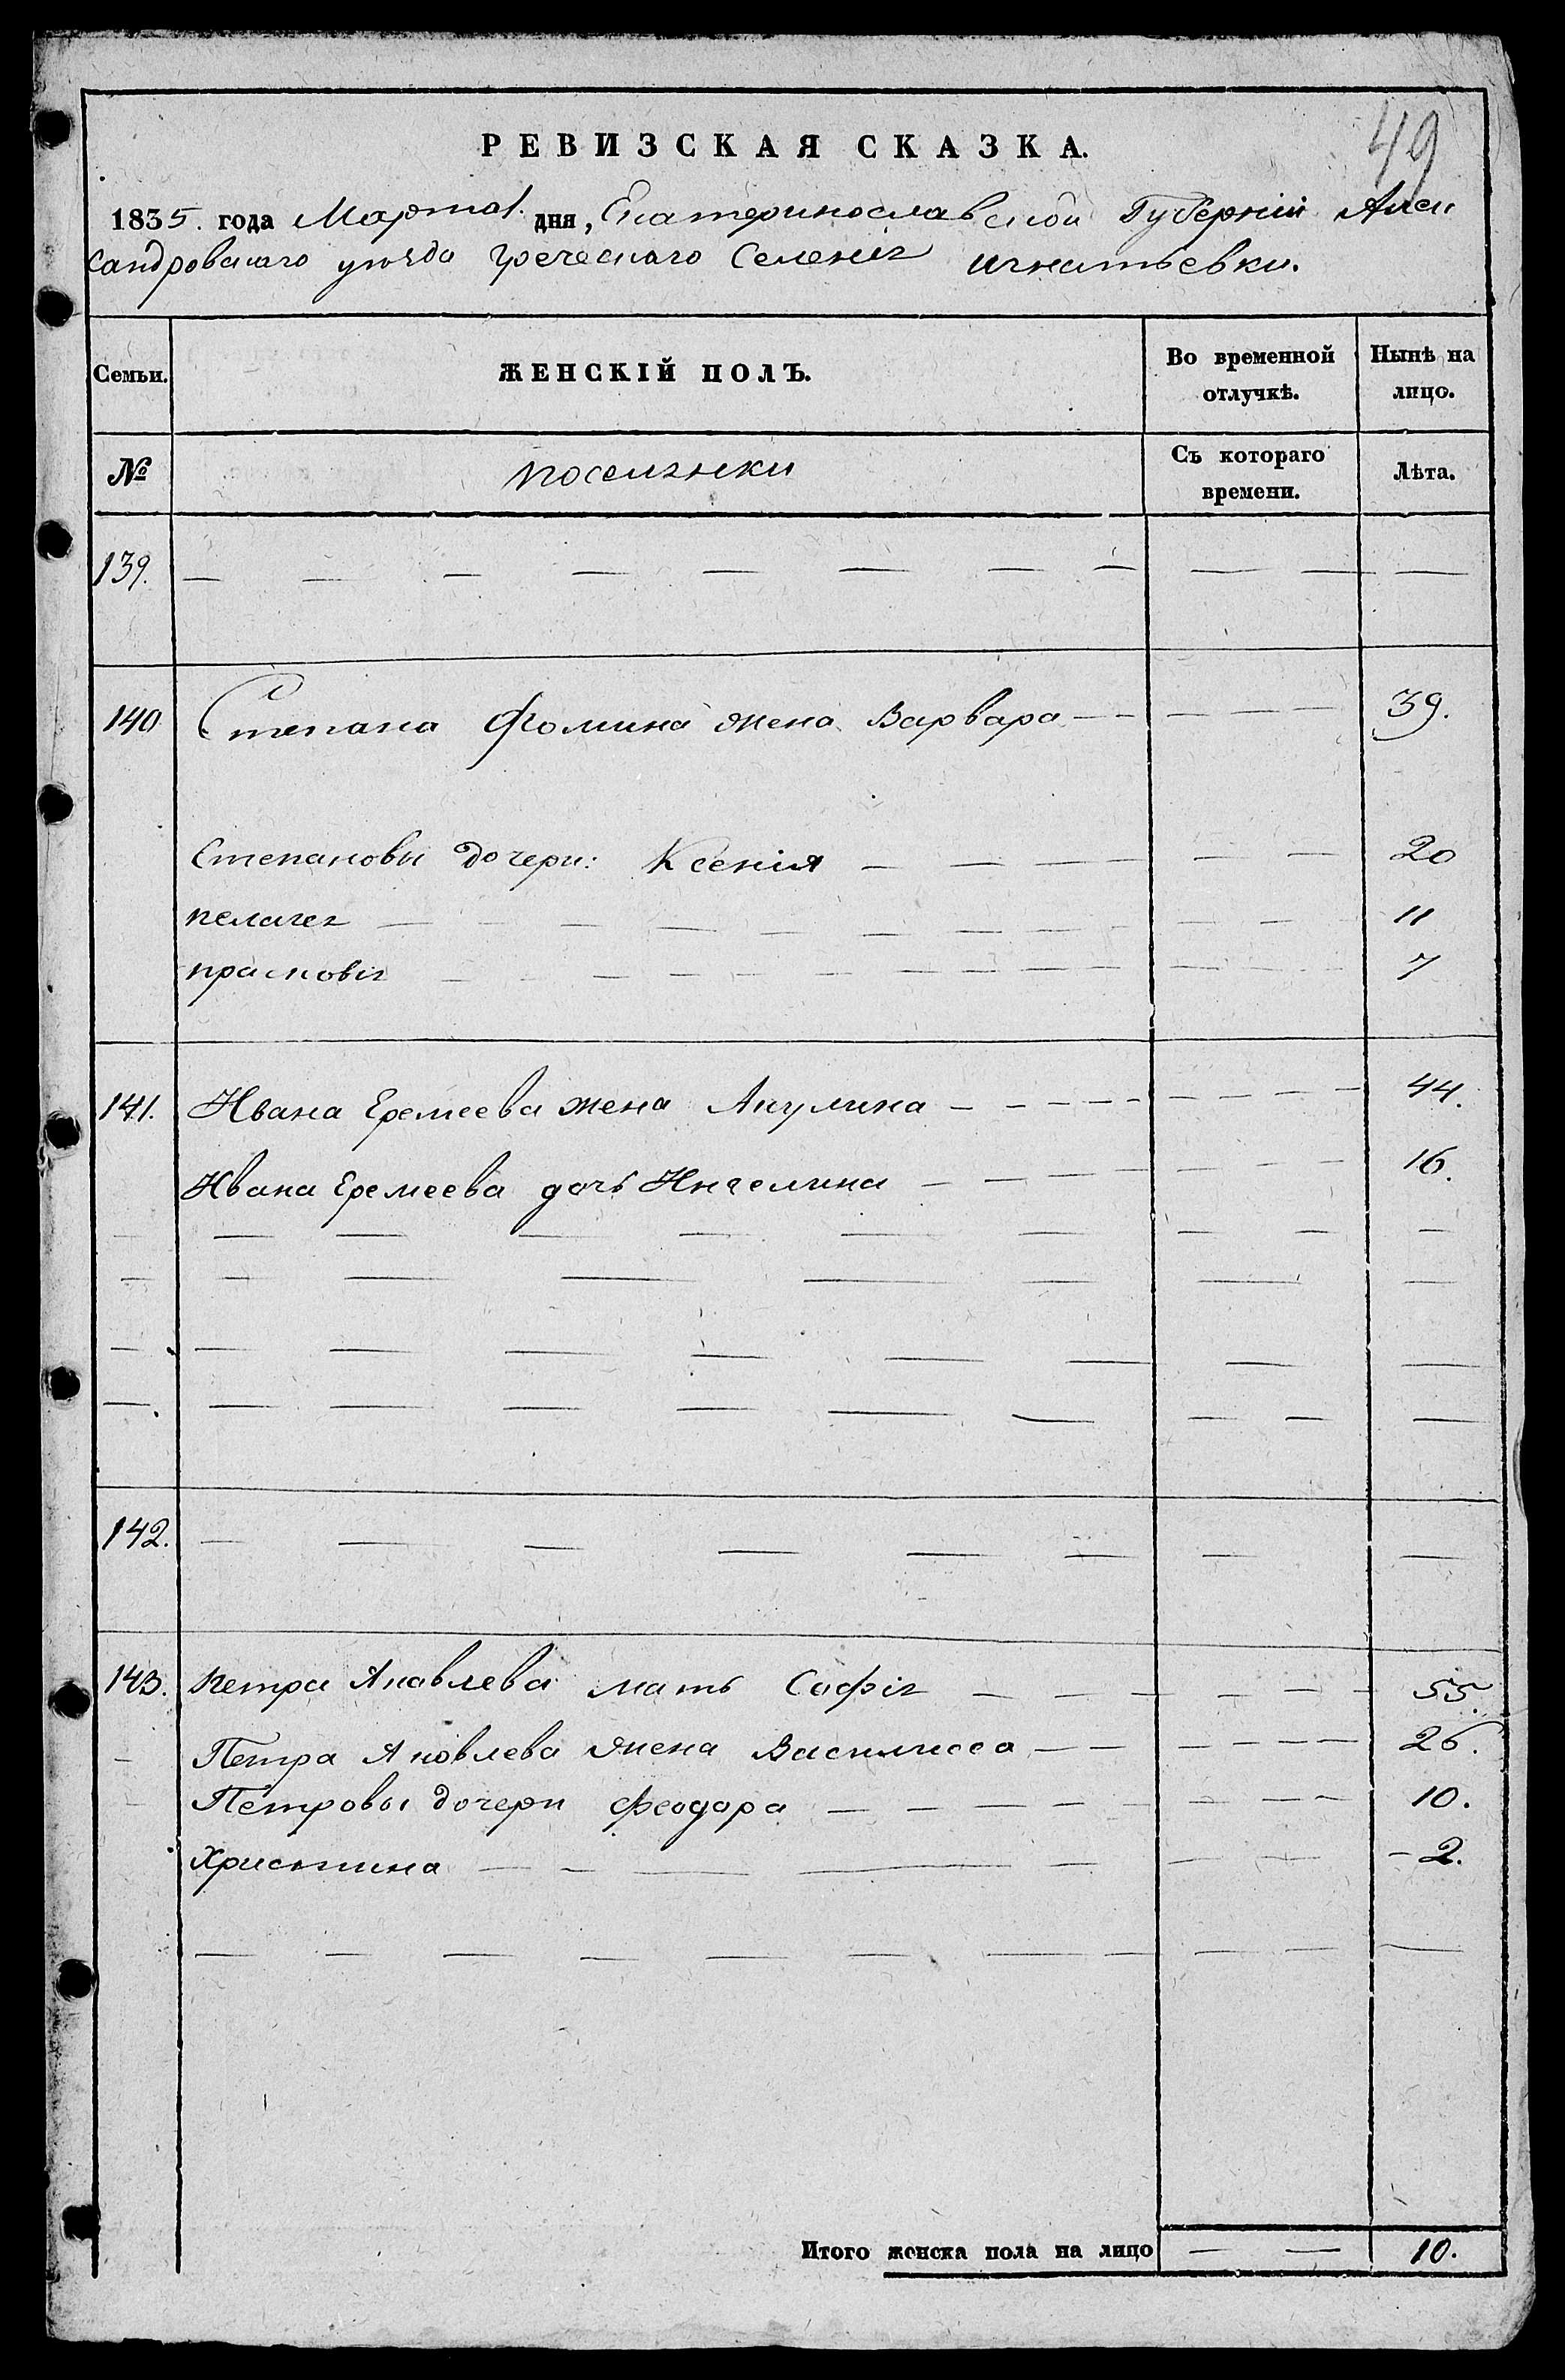 49
РЕВИЗСКАЯ СКАЗКА.
1835. года Марта 1. дня, Екатеринославской Губерніи Алек
сандровскаго уѣзда Греческаго Селенія Игнатьевки.
Семьи.
ЖЕНСКІЙ ПОЛЪ.
Во временной отлучкѣ.
Нынѣ на лицо.
№
поселянки
Съ котораго времени.
Лѣта.
139. — — — — — — — — — — —
140 Степана Фомина жена Варвара — — — — — — 39.
Степановы дочери: Ксенія — — — — — — 20
пелагея — — — — — — — — — — — 11
прасковія — — — — — — — — — — — 7
141. Ивана Еремеева жена Акулина — — — — — — — — — 44.
Ивана Еремеева дочь Ангелина — — — — — — — — 16.
— — — — — — — — — —
— — — — — — — — —
— — — — — — — — —
— — — — — — — — — —
142. — — — — — — — —
143. петра Яковлева мать Софія — — — — — — 55.
— Петра Яковлева жена Василисса — — — — — — 26.
— Петровы дочери Феодора — — — — — — — — — 10.
Христина — — — — — — — — 2.
— — — — — — — — — — —
Итого женска пола на лицо — — 10.